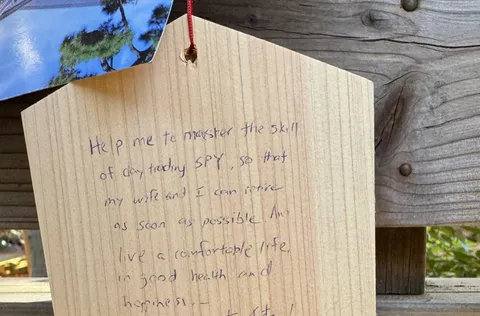 Help me to marster the skill
of day trading SPY, so that
my wife and I can retire
as soon as possible. An
live a comfortable life,
in good health and
happiness. —